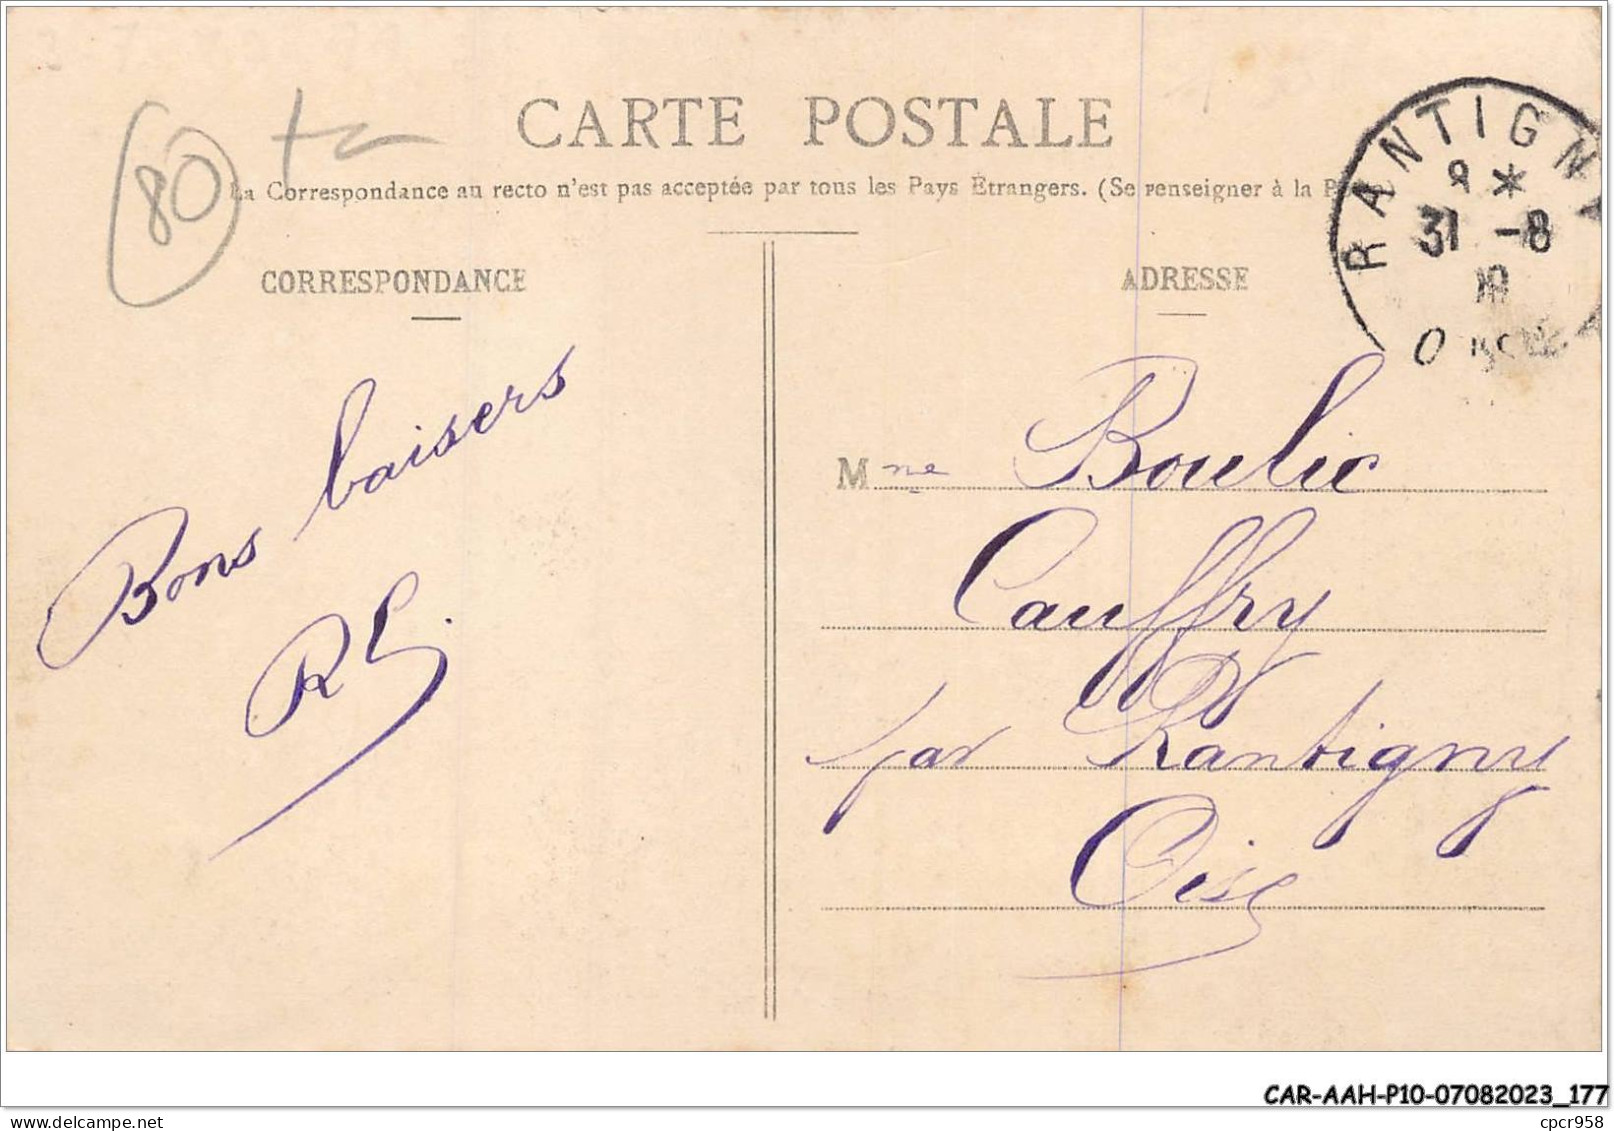 CARTE POSTALE
80
La Correspondance au recto n'est pas acceptée par tous les Pays Étrangers. (Se renseigner à la P
RANTIGNY
8 *
31 -8
CORRESPONDANCE
ADRESSE
Bons baisers
RL.
Mme Boulic
Cauffry
par Rantigny
Oise
CAR-AAH-P10-07082023_177
cpcr958